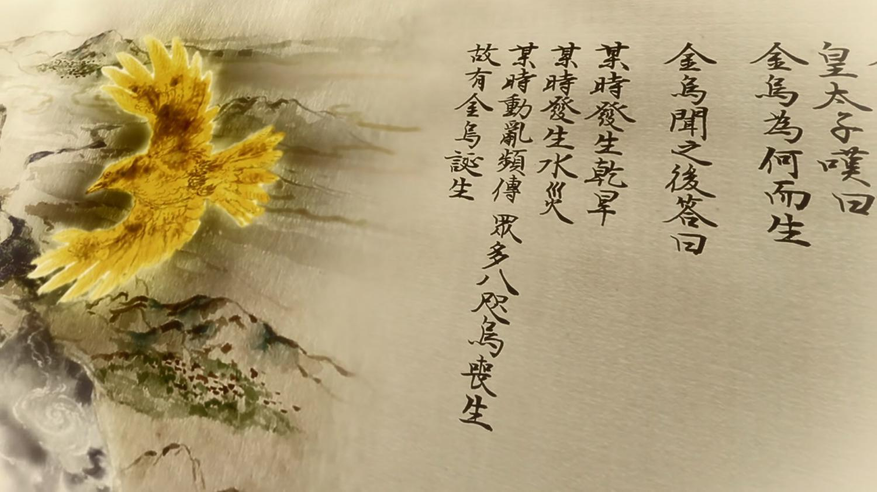 皇太子嘆曰
金烏為何而生
金烏聞之後答曰
某時發生乾旱
某時發生水災
某時動亂頻傳 眾多八咫烏喪生
故有金烏誕生